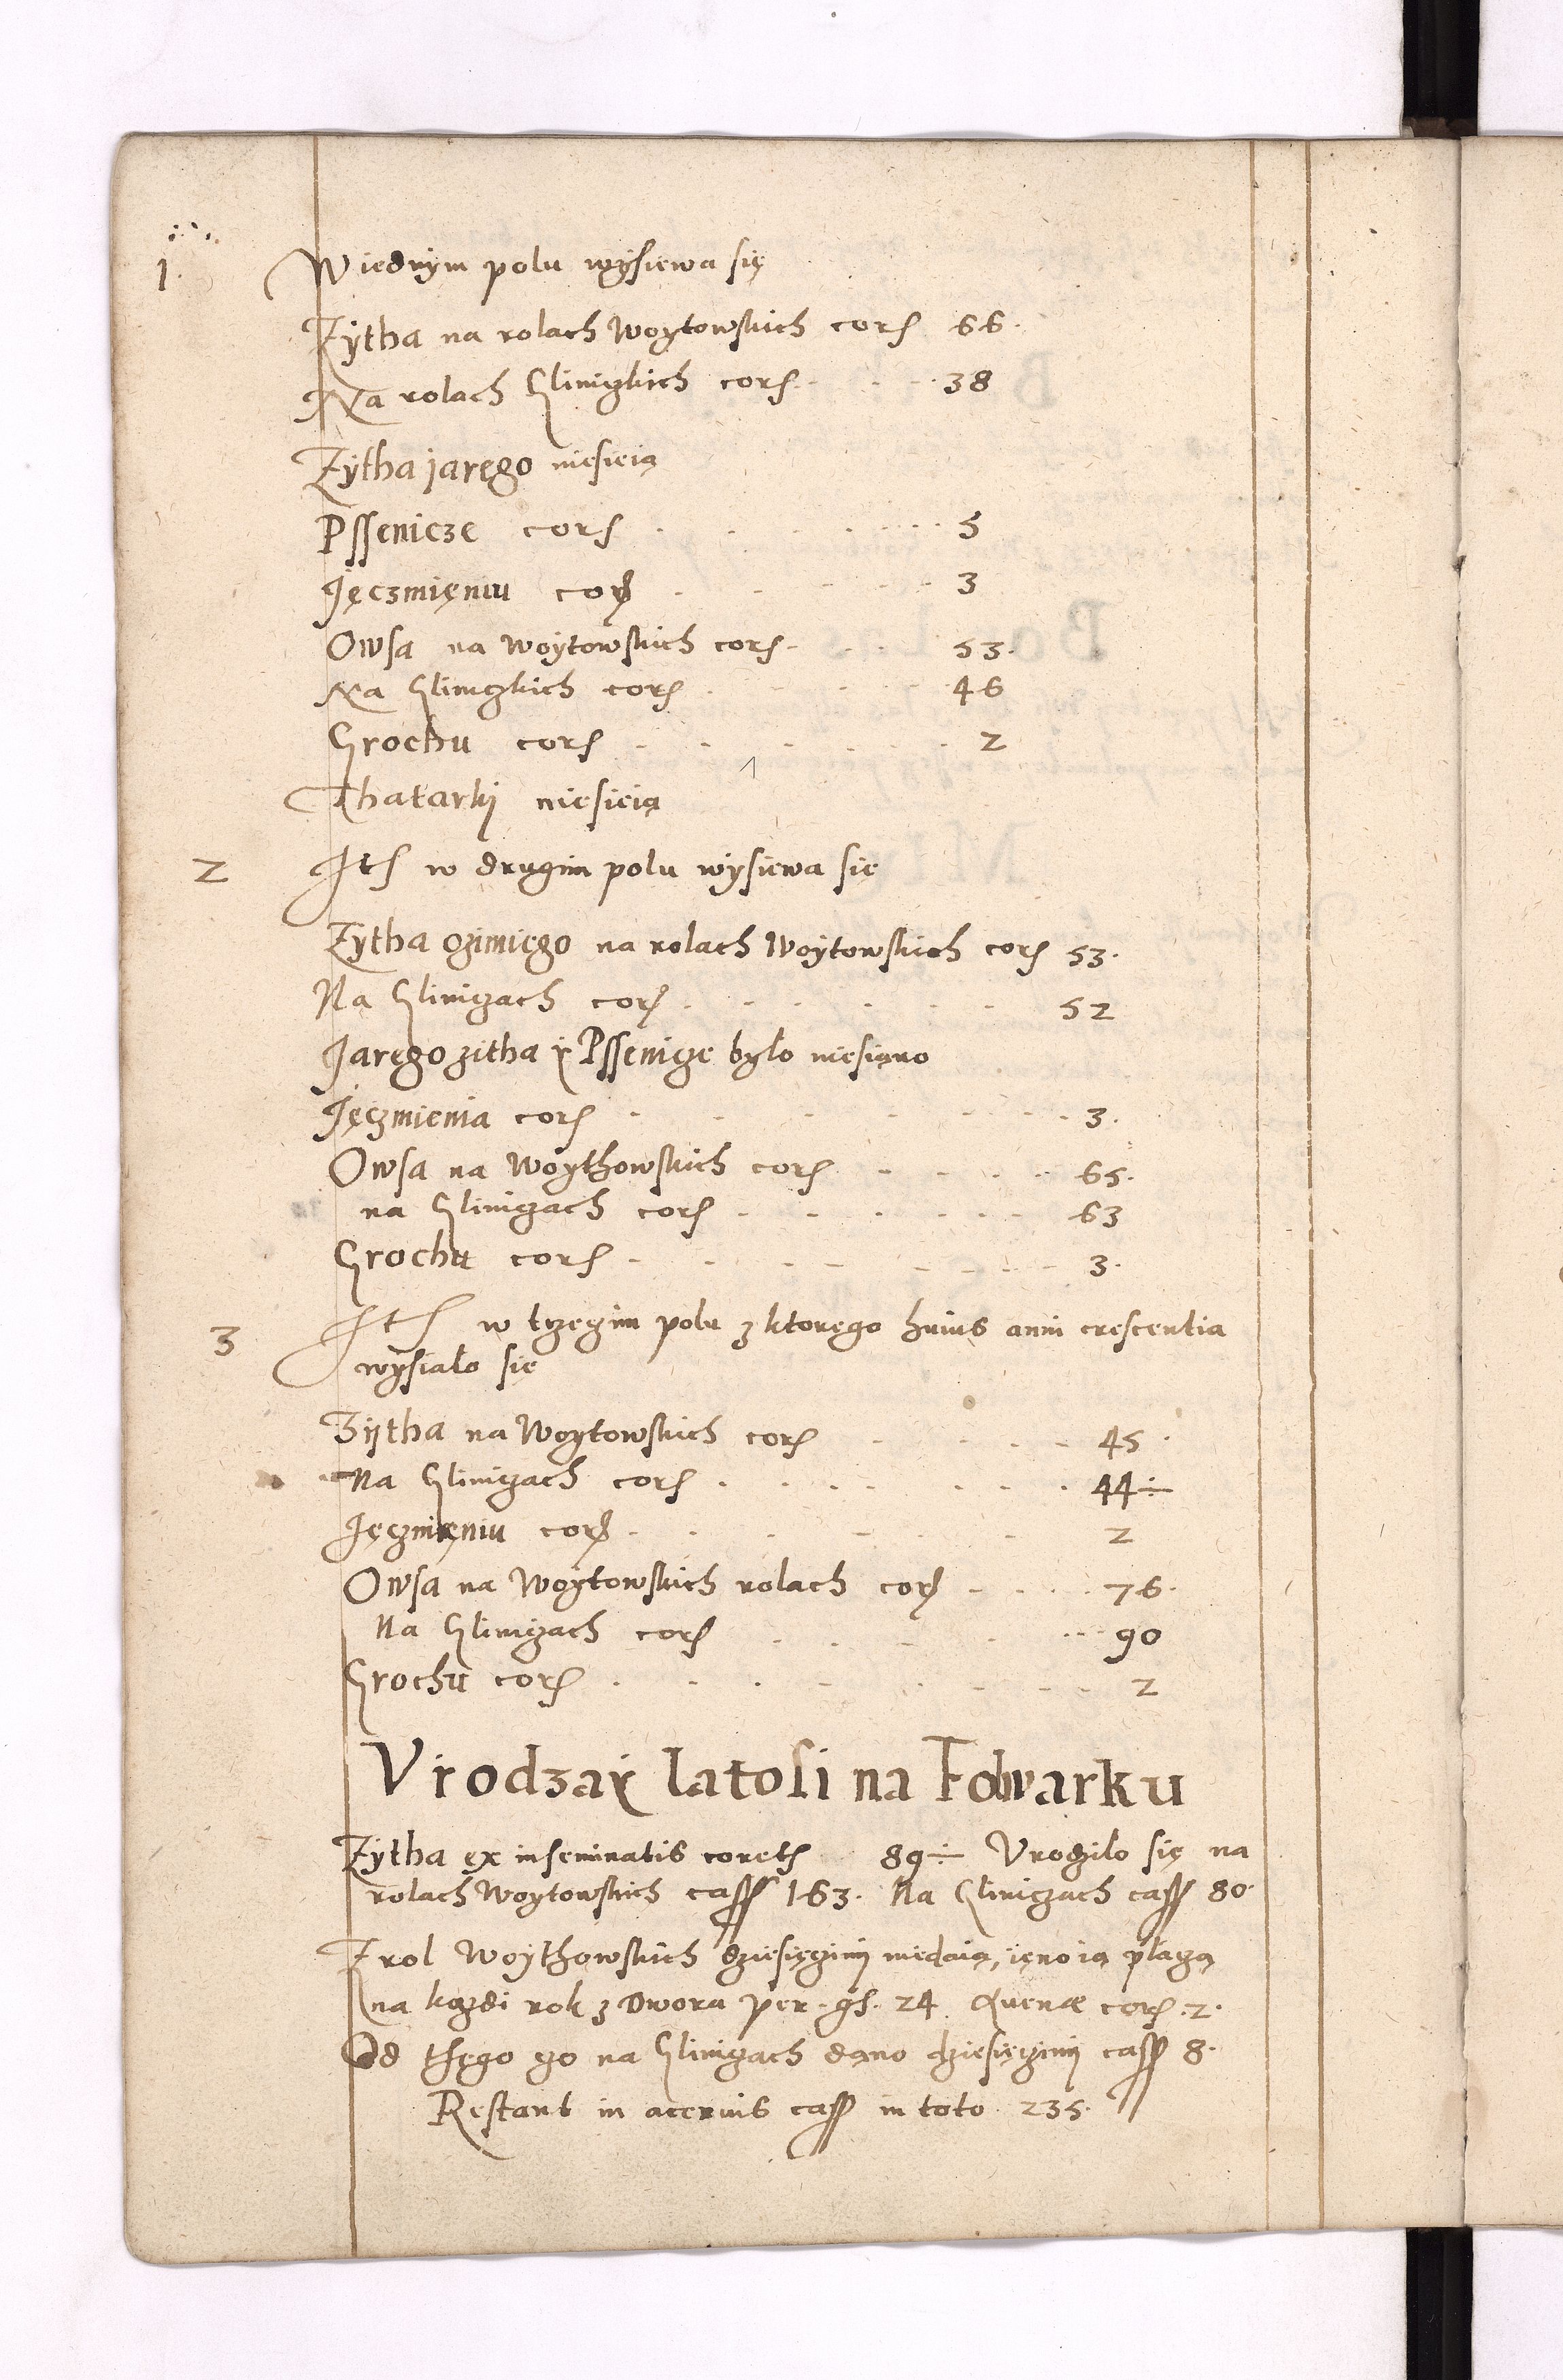 1. Wiednym polu wysiewa się
Zytha na rolach Woytowskich cors 66.
Na rolach Gliniczkich cors 38
Zytha jarego niesieią
Pssenicze cors 5
Jęczmięniu cors 3
Owsa na Woytowskich cors 53.
Na Gliniczkich cors 46
Grochu cors 2
Thatarki niesieią
2 Its w drugim polu wysiewa się
Zytha ozimięgo na rolach Woytowskich cors 53.
Na Gliniczach cors 52
Jarego zitha y Pssenicze było niesiano
Jęczmienia cors 3.
Owsa na Woythowskich cors 65.
na Gliniczach cors 63
Grochu cors 3.
3 Its w trzecim polu z ktorego huius anni crescentia
wysiało się
Zytha na Woytowskich cors 45
Na Gliniczach cors 44÷
Jęczmięniu cors 2
Owsa na Woytowskich rolach cors 76.
Na Gliniczach cors 90
Grochu cors 2
Vrodzay latosi na Folwarku
Zytha ex inseminatis corets 89÷ Vrodziło się na
rolach Woytowskich cass 163. Na Gliniczach cass 80.
Z rol Woythowskich dziesięciny niedaią, ieno ią płaczą
na kazdi rok z Dwora per gs. 24 Auenæ cors 2.
Od thego zo na Gliniczach dano dziesięciny cass 8.
Restant in aceruis cass in toto 235.